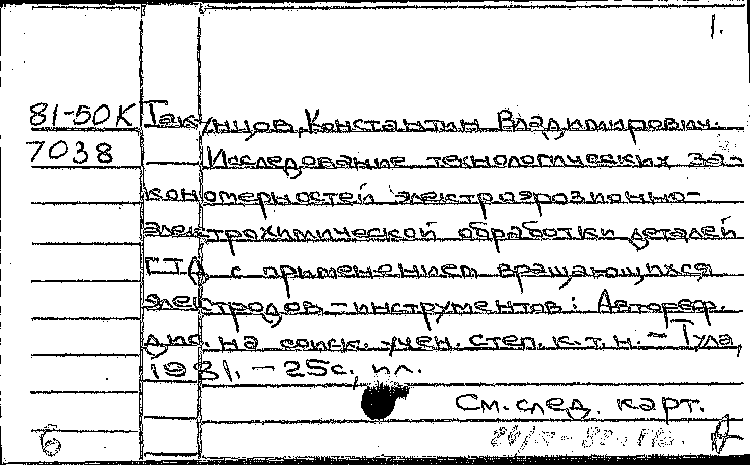 1.
81-50К Такунцов, Константин Владимирович.
7038 Исследование технологических за-
кономерностей электроэрозионно-
электрохимической обработки деталей
ГТД с применением вращающихся
электродов-инструментов: Автореф.
дис. на соиск. учен. степ. к.т.н. – Тула,
1981. – 25с., ил.
См. след. карт.
6